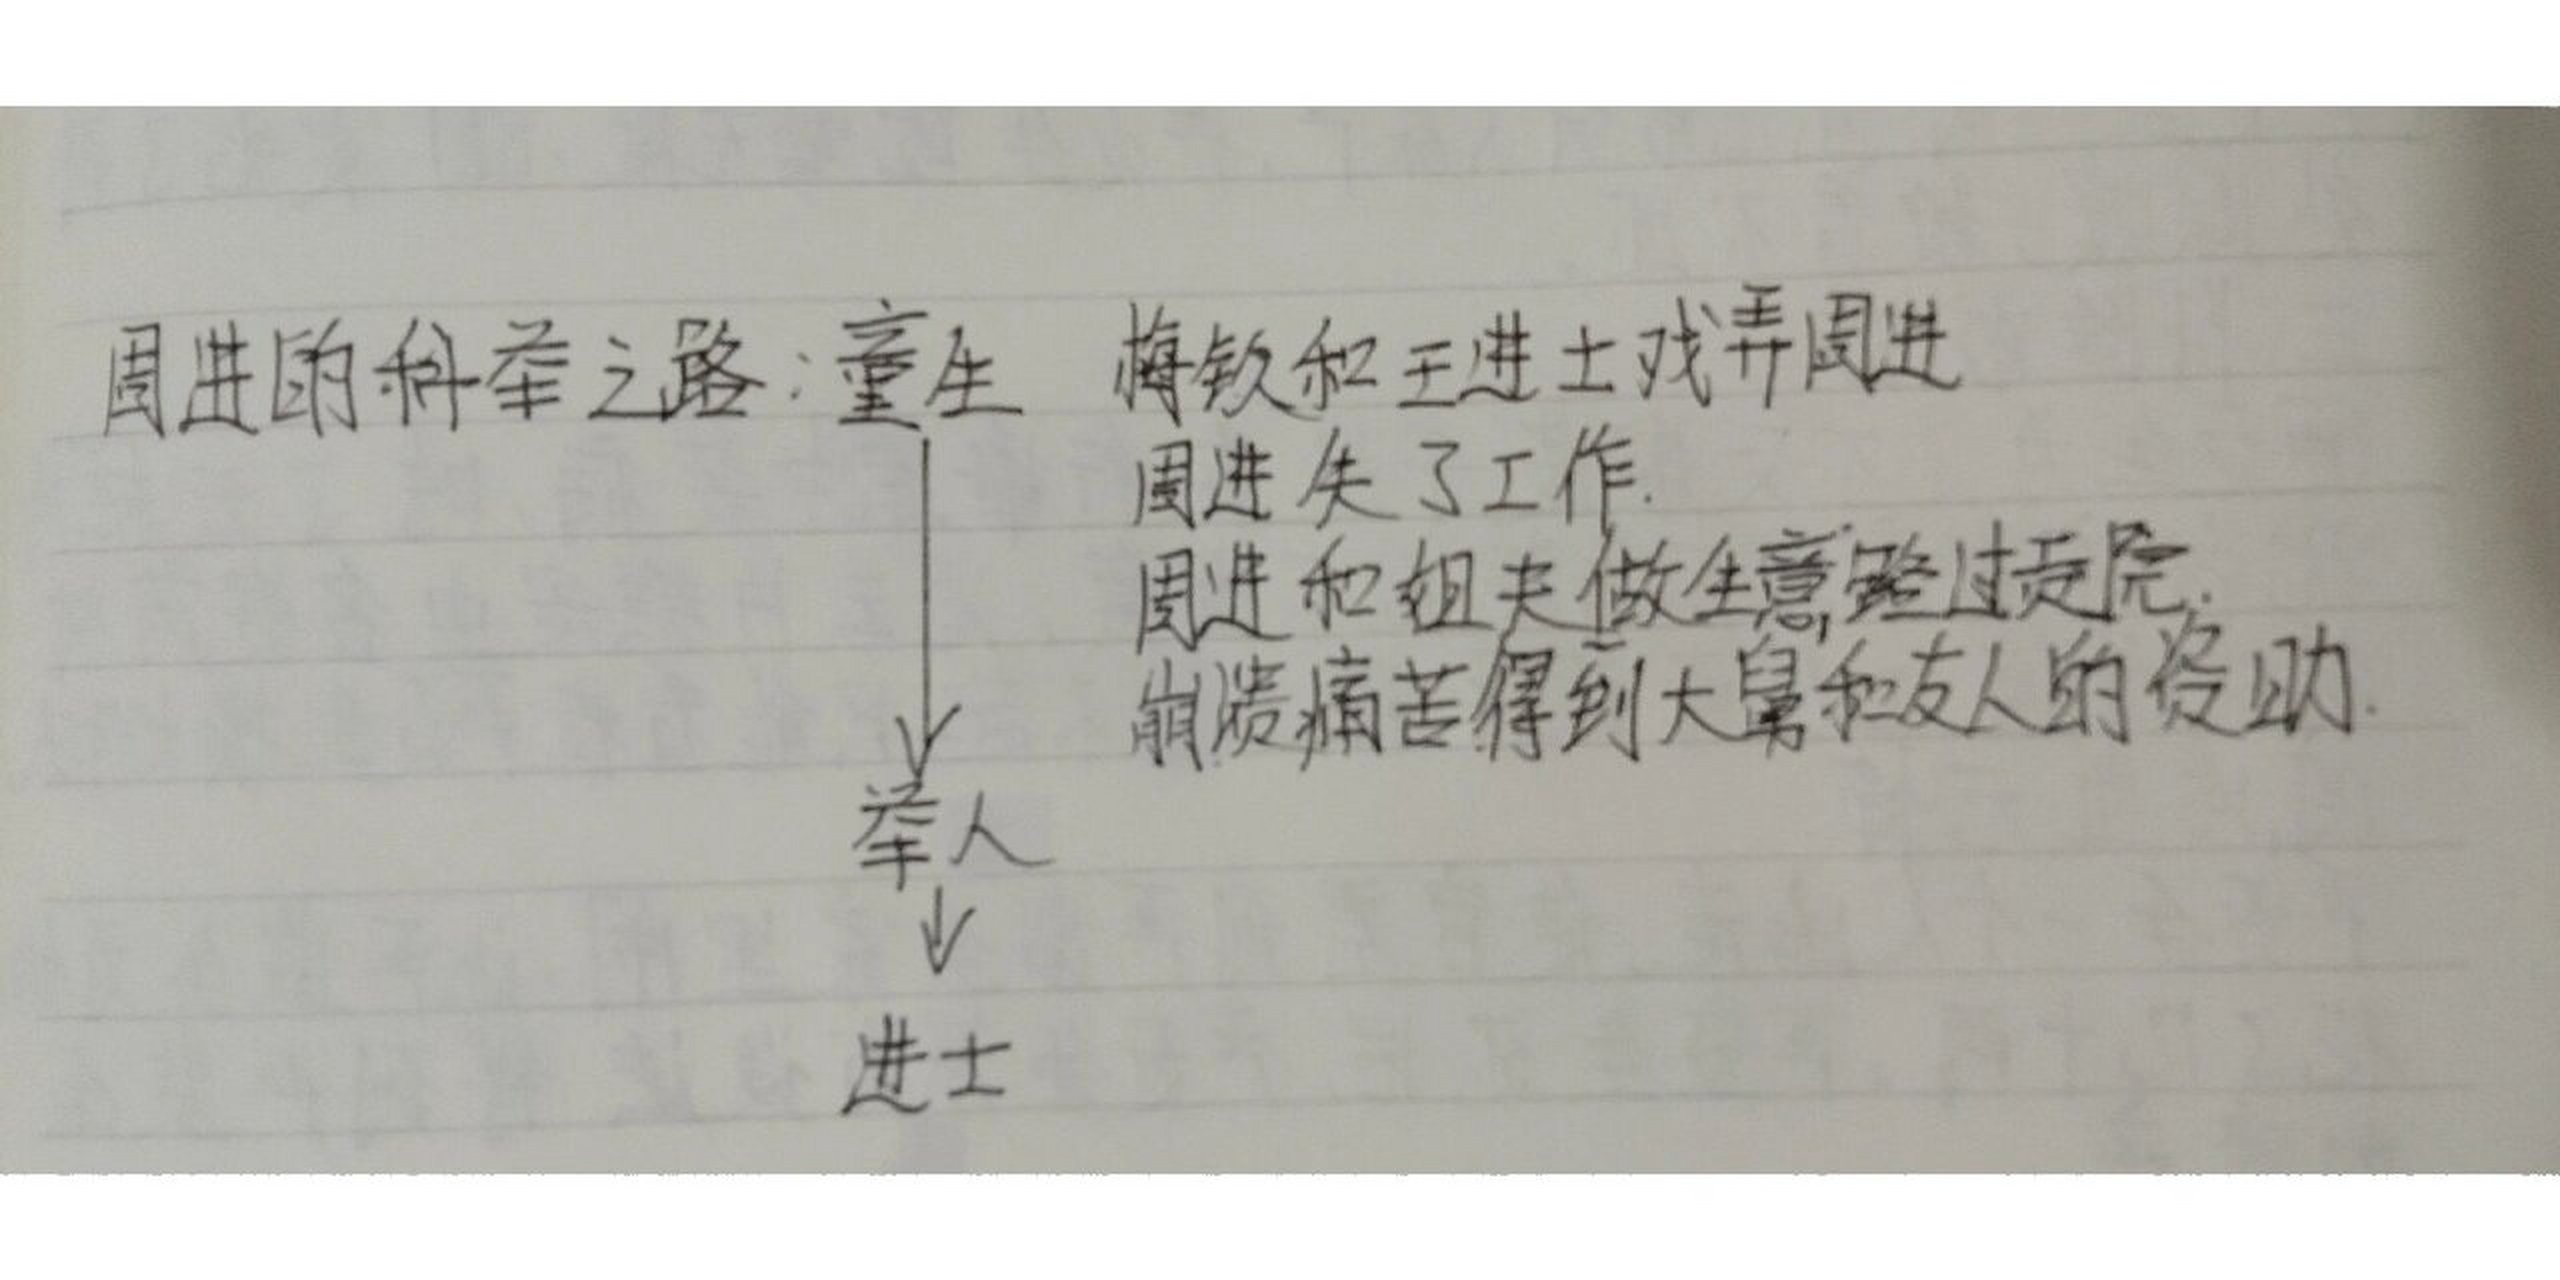 周进的科举之路:童生 梅钦和王进士戏弄周进
周进失了工作.
周进和姐夫做生意,路过贡院.
崩溃痛苦得到大舅和友人的资助.
举人
进士